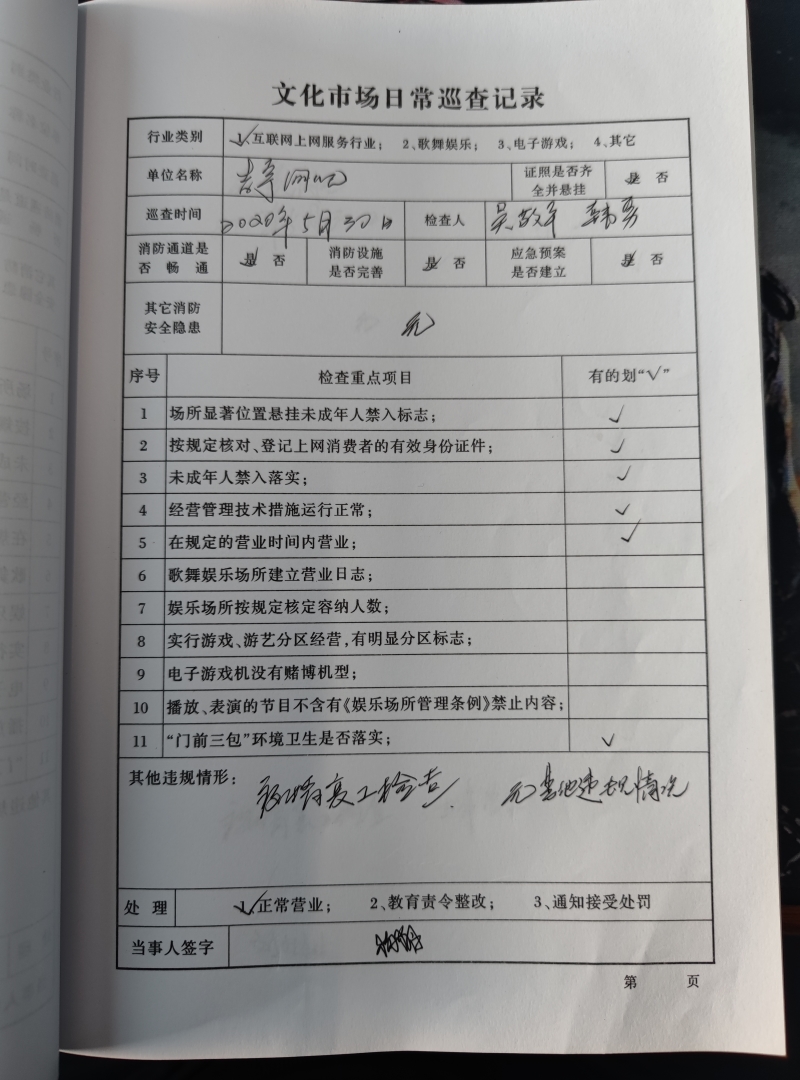 文化市场日常巡查记录
行业类别 1、互联网上网服务行业; 2、歌舞娱乐; 3、电子游戏; 4、其它
单位名称 网吧 证照是否齐全并悬挂 是 否
巡查时间 2020年5月30日 检查人
消防通道是否畅通 是 否 消防设施是否完善 是 否 应急预案是否建立 是 否
其它消防安全隐患 无
序号 检查重点项目 有的划“√”
1 场所显著位置悬挂未成年人禁入标志; √
2 按规定核对、登记上网消费者的有效身份证件; √
3 未成年人禁入落实; √
4 经营管理技术措施运行正常; √
5 在规定的营业时间内营业; √
6 歌舞娱乐场所建立营业日志;
7 娱乐场所按规定核定容纳人数;
8 实行游戏、游艺分区经营,有明显分区标志;
9 电子游戏机没有赌博机型;
10 播放、表演的节目不含有《娱乐场所管理条例》禁止内容;
11 “门前三包”环境卫生是否落实; √
其他违规情形: 复工检查. 无其他违规情况
处理 1、正常营业; 2、教育责令整改; 3、通知接受处罚
当事人签字
第 页